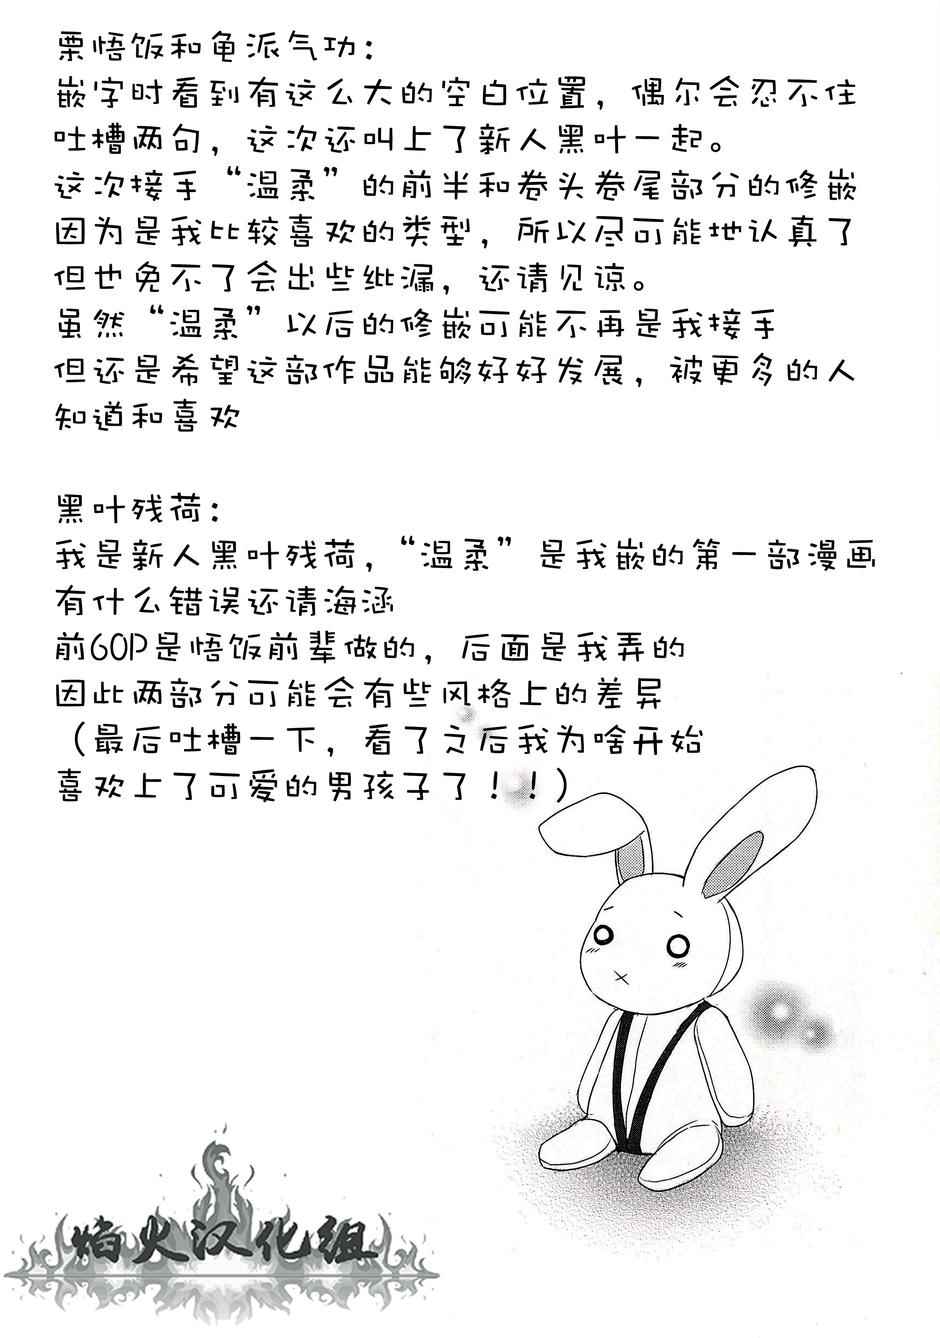 栗悟饭和龟派气功：
嵌字时看到有这么大的空白位置，偶尔会忍不住
吐槽两句，这次还叫上了新人黑叶一起。
这次接手“温柔”的前半和卷头卷尾部分的修嵌
因为是我比较喜欢的类型，所以尽可能地认真了
但也免不了会出些纰漏，还请见谅。
虽然“温柔”以后的修嵌可能不再是我接手
但还是希望这部作品能够好好发展，被更多的人
知道和喜欢
黑叶残荷：
我是新人黑叶残荷，“温柔”是我嵌的第一部漫画
有什么错误还请海涵
前60P是悟饭前辈做的，后面是我弄的
因此两部分可能会有些风格上的差异
（最后吐槽一下，看了之后我为啥开始
喜欢上了可爱的男孩子了！！）
焰火汉化组